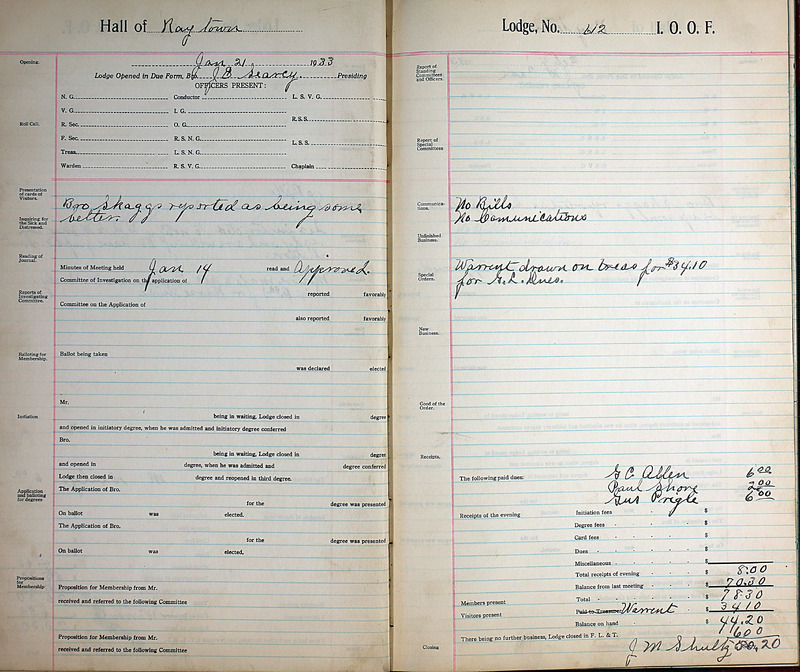 Hall of Ray town
Jan 21 1933
Opening.
Lodge Opened in Due Form, By J E Searcy. Presiding
OFFICERS PRESENT:
N. G. Conductor L. S. V. G.
V. G. I. G.
R.S.S.
Roll Call.
R. Sec. O. G.
F. Sec. R. S. N. G.
L.S.S.
Treas. L. S. N. G.
Warden R. S. V. G. Chaplain
Presentation of cards of Visitors.
Bro Skaggs reported as being some
better.
Inquiring for the Sick and Distressed.
Reading of Journal.
Minutes of Meeting held Jan 14 read and Approved.
Committee of Investigation on the application of
Reports of Investigating Committee.
reported favorably
Committee on the Application of
also reported favorably
Balloting for Membership.
Ballot being taken
was declared elected
Mr.
Initiation
being in waiting, Lodge closed in degree
and opened in initiatory degree, when he was admitted and initiatory degree conferred
Bro.
being in waiting, Lodge closed in degree
and opened in degree, when he was admitted and degree conferred
Lodge then closed in degree and reopened in third degree.
Application and balloting for degrees
The Application of Bro.
for the degree was presented
On ballot was elected.
The Application of Bro.
for the degree was presented
On ballot was elected.
Propositions for Membership
Proposition for Membership from Mr.
received and referred to the following Committee
Proposition for Membership from Mr.
received and referred to the following Committee
Lodge, No. 612 I. O. O. F.
Report of Standing Committees and Officers.
Report of Special Committees
Communications.
No Bills
No Comunications
Unfinished Business.
Special Orders.
Warrent drawn on treas for $34.10
for G.L. Dues.
New Business.
Good of the Order.
Receipts.
The following paid dues: G C Ablen 6 00
Paul Shore 2 00
Gus Prigle 6 00
Receipts of the evening Initiation fees $
Degree fees $
Card fees $
Dues $
Miscellaneous $
Total receipts of evening $ 8.00
Balance from last meeting $ 70.30
Members present Total $ 78 30
Visitors present Paid to Treasurer Warrent $ 34 10
Balance on hand $ 44.20
There being no further business, Lodge closed in F. L. & T. 6 00
Closing J M Shultz 50.20